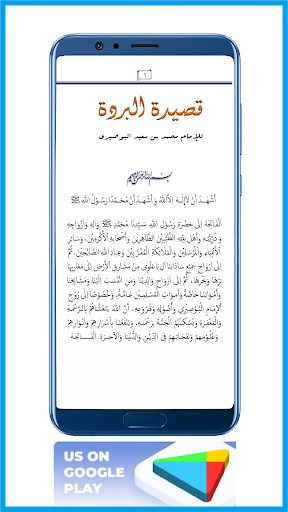 ١
قصيدة البردة
للإمام محمد بن سعيد البوصيري
بسم الله الرحمن الرحيم
أَشْهَدُ أَنْ لَا إِلٰهَ إِلَّا اللهُ وَ أَشْهَدُ أَنَّ مُحَمَّدًا رَسُولُ اللهِ ﷺ
الْفَاتِحَةَ إِلَى حَضْرَةِ رَسُولِ اللهِ سَيِّدِنَا مُحَمَّدٍ ﷺ وَآلِهِ وَأَزْوَاجِهِ
وَ ذُرِّيَّتِهِ وَأَهْلِ بَيْتِهِ الطَّيِّبِيْنَ الطَّاهِرِيْنَ وَأَصْحَابِهِ الْأَكْرَمِيْنَ، وَسَائِرِ
الْأَنْبِيَاءِ وَالْمُرْسَلِيْنَ وَالْمَلَائِكَةِ الْمُقَرَّبِيْنَ وَعِبَادِ اللهِ الصَّالِحِيْنَ، ثُمَّ
إِلَى أَرْوَاحِ جَمِيْعِ سَادَاتِنَا آلِ بَاعَلَوِي مِنْ مَشَارِقِ الْأَرْضِ إِلَى مَغَارِبِهَا
بَرِّهَا وَبَحْرِهَا، ثُمَّ إِلَى أَرْوَاحِ وَالِدِيْنَا وَمَنِ انْتَسَبَ إِلَيْنَا وَمَشَايِخِنَا
وَأَمْوَاتِنَا خَاصَّةً وَأَمْوَاتِ الْمُسْلِمِيْنَ عَامَّةً، وَخُصُوْصًا إِلَى رُوْحِ
الْإِمَامِ الْبُوْصِيْرِي، وَأُصُوْلِهِ وَفُرُوْعِهِ، أَنَّ اللهَ يَتَغَشَّاهُمْ بِالرَّحْمَةِ
وَالْمَغْفِرَةِ وَيُسْكِنُهُمُ الْجَنَّةَ بِرَحْمَتِهِ، وَيَنْفَعُنَا بِأَسْرَارِهِمْ وَأَنْوَارِهِمْ
وَعُلُوْمِهِمْ وَنَفَحَاتِهِمْ فِي الدِّيْنِ وَالدُّنْيَا وَالْآخِرَةِ. الْفَاتِحَة
US ON
GOOGLE
PLAY